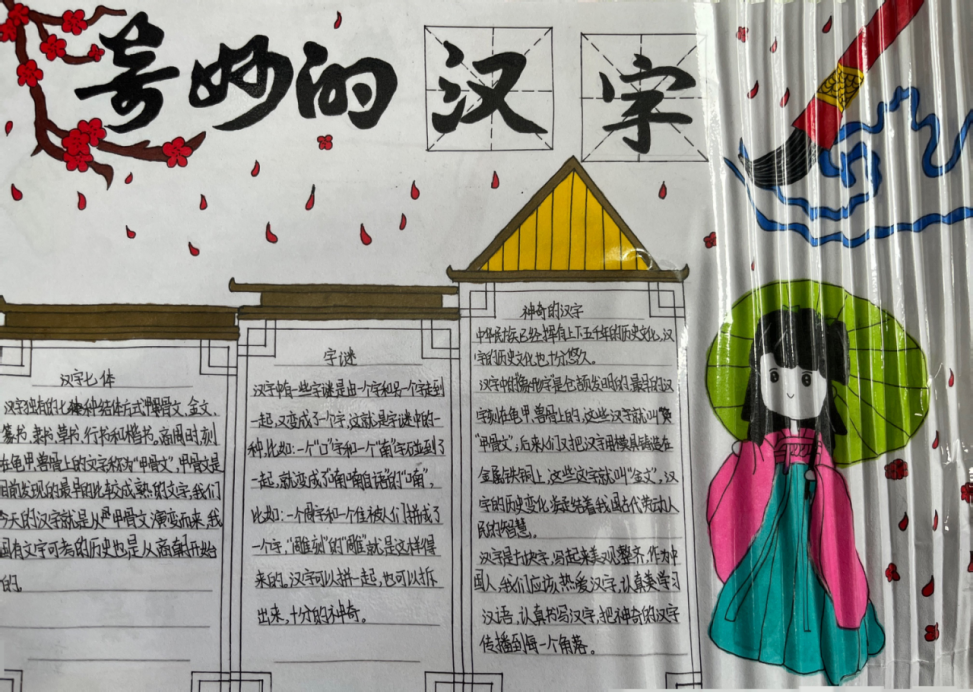 奇妙的汉字
汉字七体
汉字独有的七种结体方式"甲骨文、金文、
篆书、隶书、草书、行书和楷书。商周时刻
在龟甲、兽骨上的汉字称为"甲骨文",甲骨文是
目前发现的最早的比较成熟的文字,我们
今天的汉字就是从甲骨文演变而来,我
国有文字可考的历史也是从商朝开始
的。
字谜
汉字中有一些字谜是由一个字和另一个字走到
一起,又变成了一个字,这就是字谜中的一
种,比如:一个"口"字和一个"南"字碰到了
一起,就变成了"喃喃自语"的"喃",
比如:一个周字和一个隹被人们拼成了
一个字,"雕刻"的"雕"就是这样得
来的。汉字可以拼一起,也可以拆
出来,十分的神奇。
神奇的汉字
中华民族已经拥有上下五千年的历史文化,汉
字的历史文化也十分悠久。
汉字中的象形字是仓颉发明的,最早的汉
字刻在龟甲、兽骨上的,这些汉字就叫
"甲骨文";后来人们又把汉字用模具铸造在
金属铁铜上,这些文字就叫"金文"。汉
字的历史变化凝结着我国古代劳动人
民的智慧。
汉字是方块字,写起来美观整齐,作为中
国人,我们应该热爱汉字,认真学习
汉语,认真书写汉字,把神奇的汉字
传播到每一个角落。